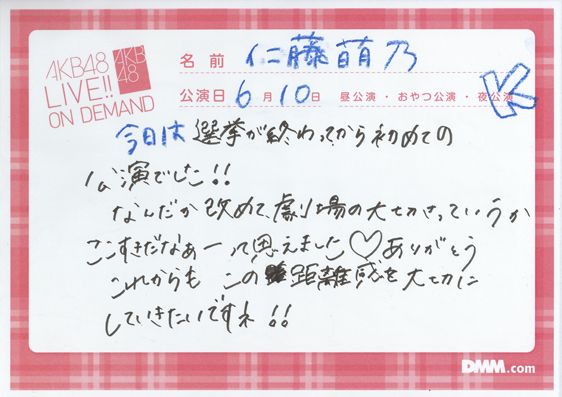 AKB48
LIVE!!
ON DEMAND
AKB
48
名前 仁藤萌乃
公演日 6月10日 昼公演・おやつ公演・夜公演
今日は選挙が終わってから初めての
公演でした!!
なんだか改めて、劇場の大切さっていうか
ここすきだなあーって思えました♡ありがとう
これからも この 距離感を大切に
していきたいですネ!!
DMM.com